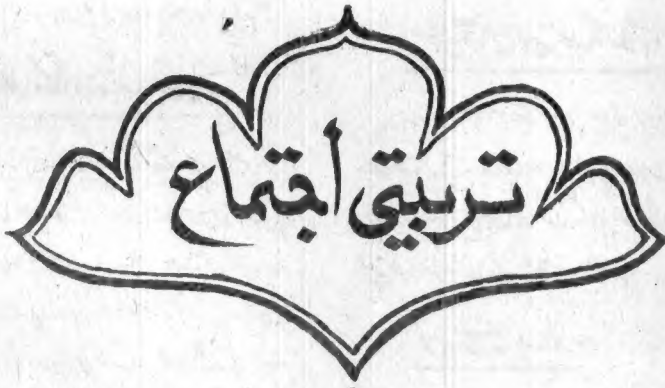 تربیتی اجتماع